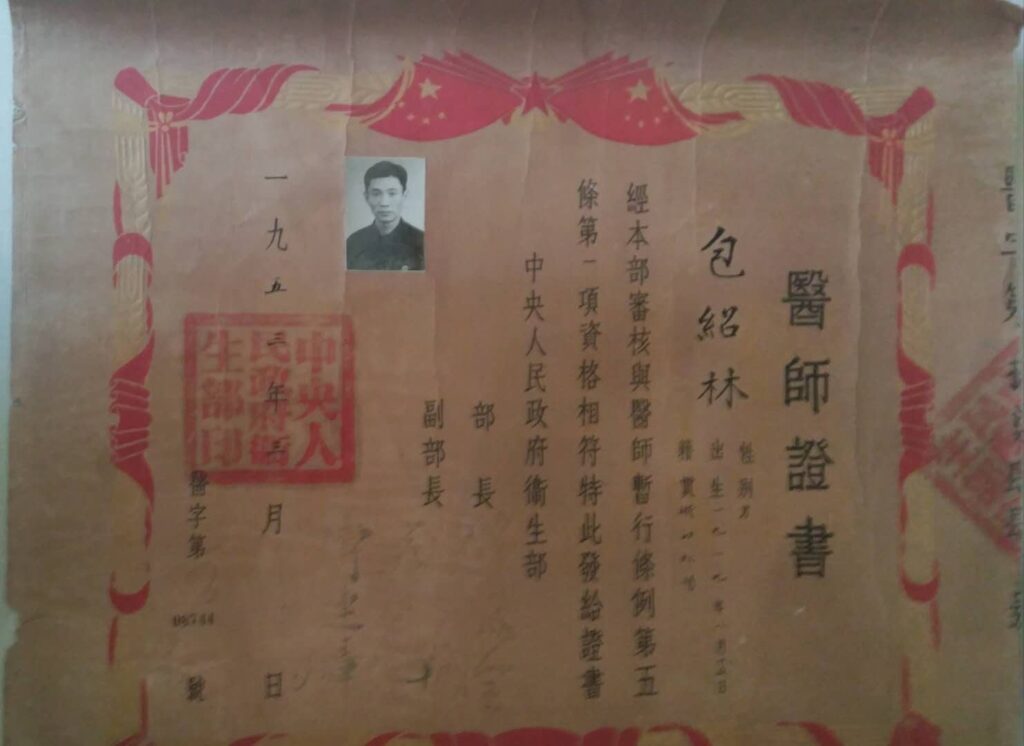 醫師證書
包紹林
性別男
出生一九一九年
籍貫
經本部審核與醫師暫行條例第五
條第一項資格相符特此發給證書
中央人民政府衞生部
部長
副部長
一九五三年三月 日
醫字第
08744
號
中央人
民政府衞
生部印